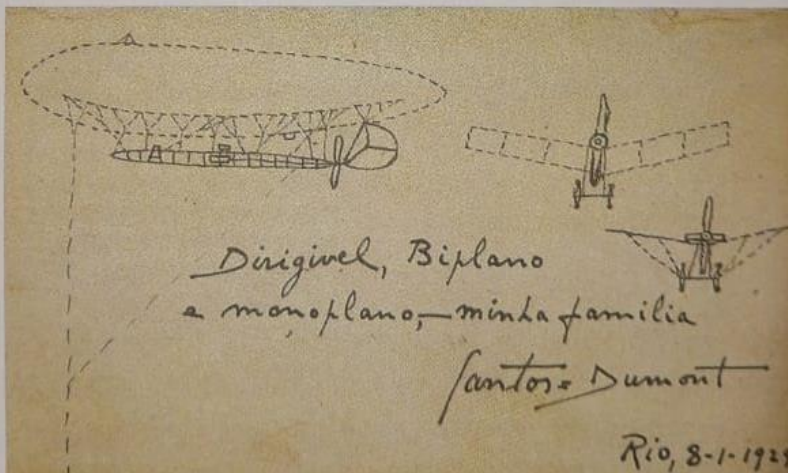 Dirigivel, Biplano
e monoplano,—minha familia
Santos=Dumont
Rio, 8-1-1929